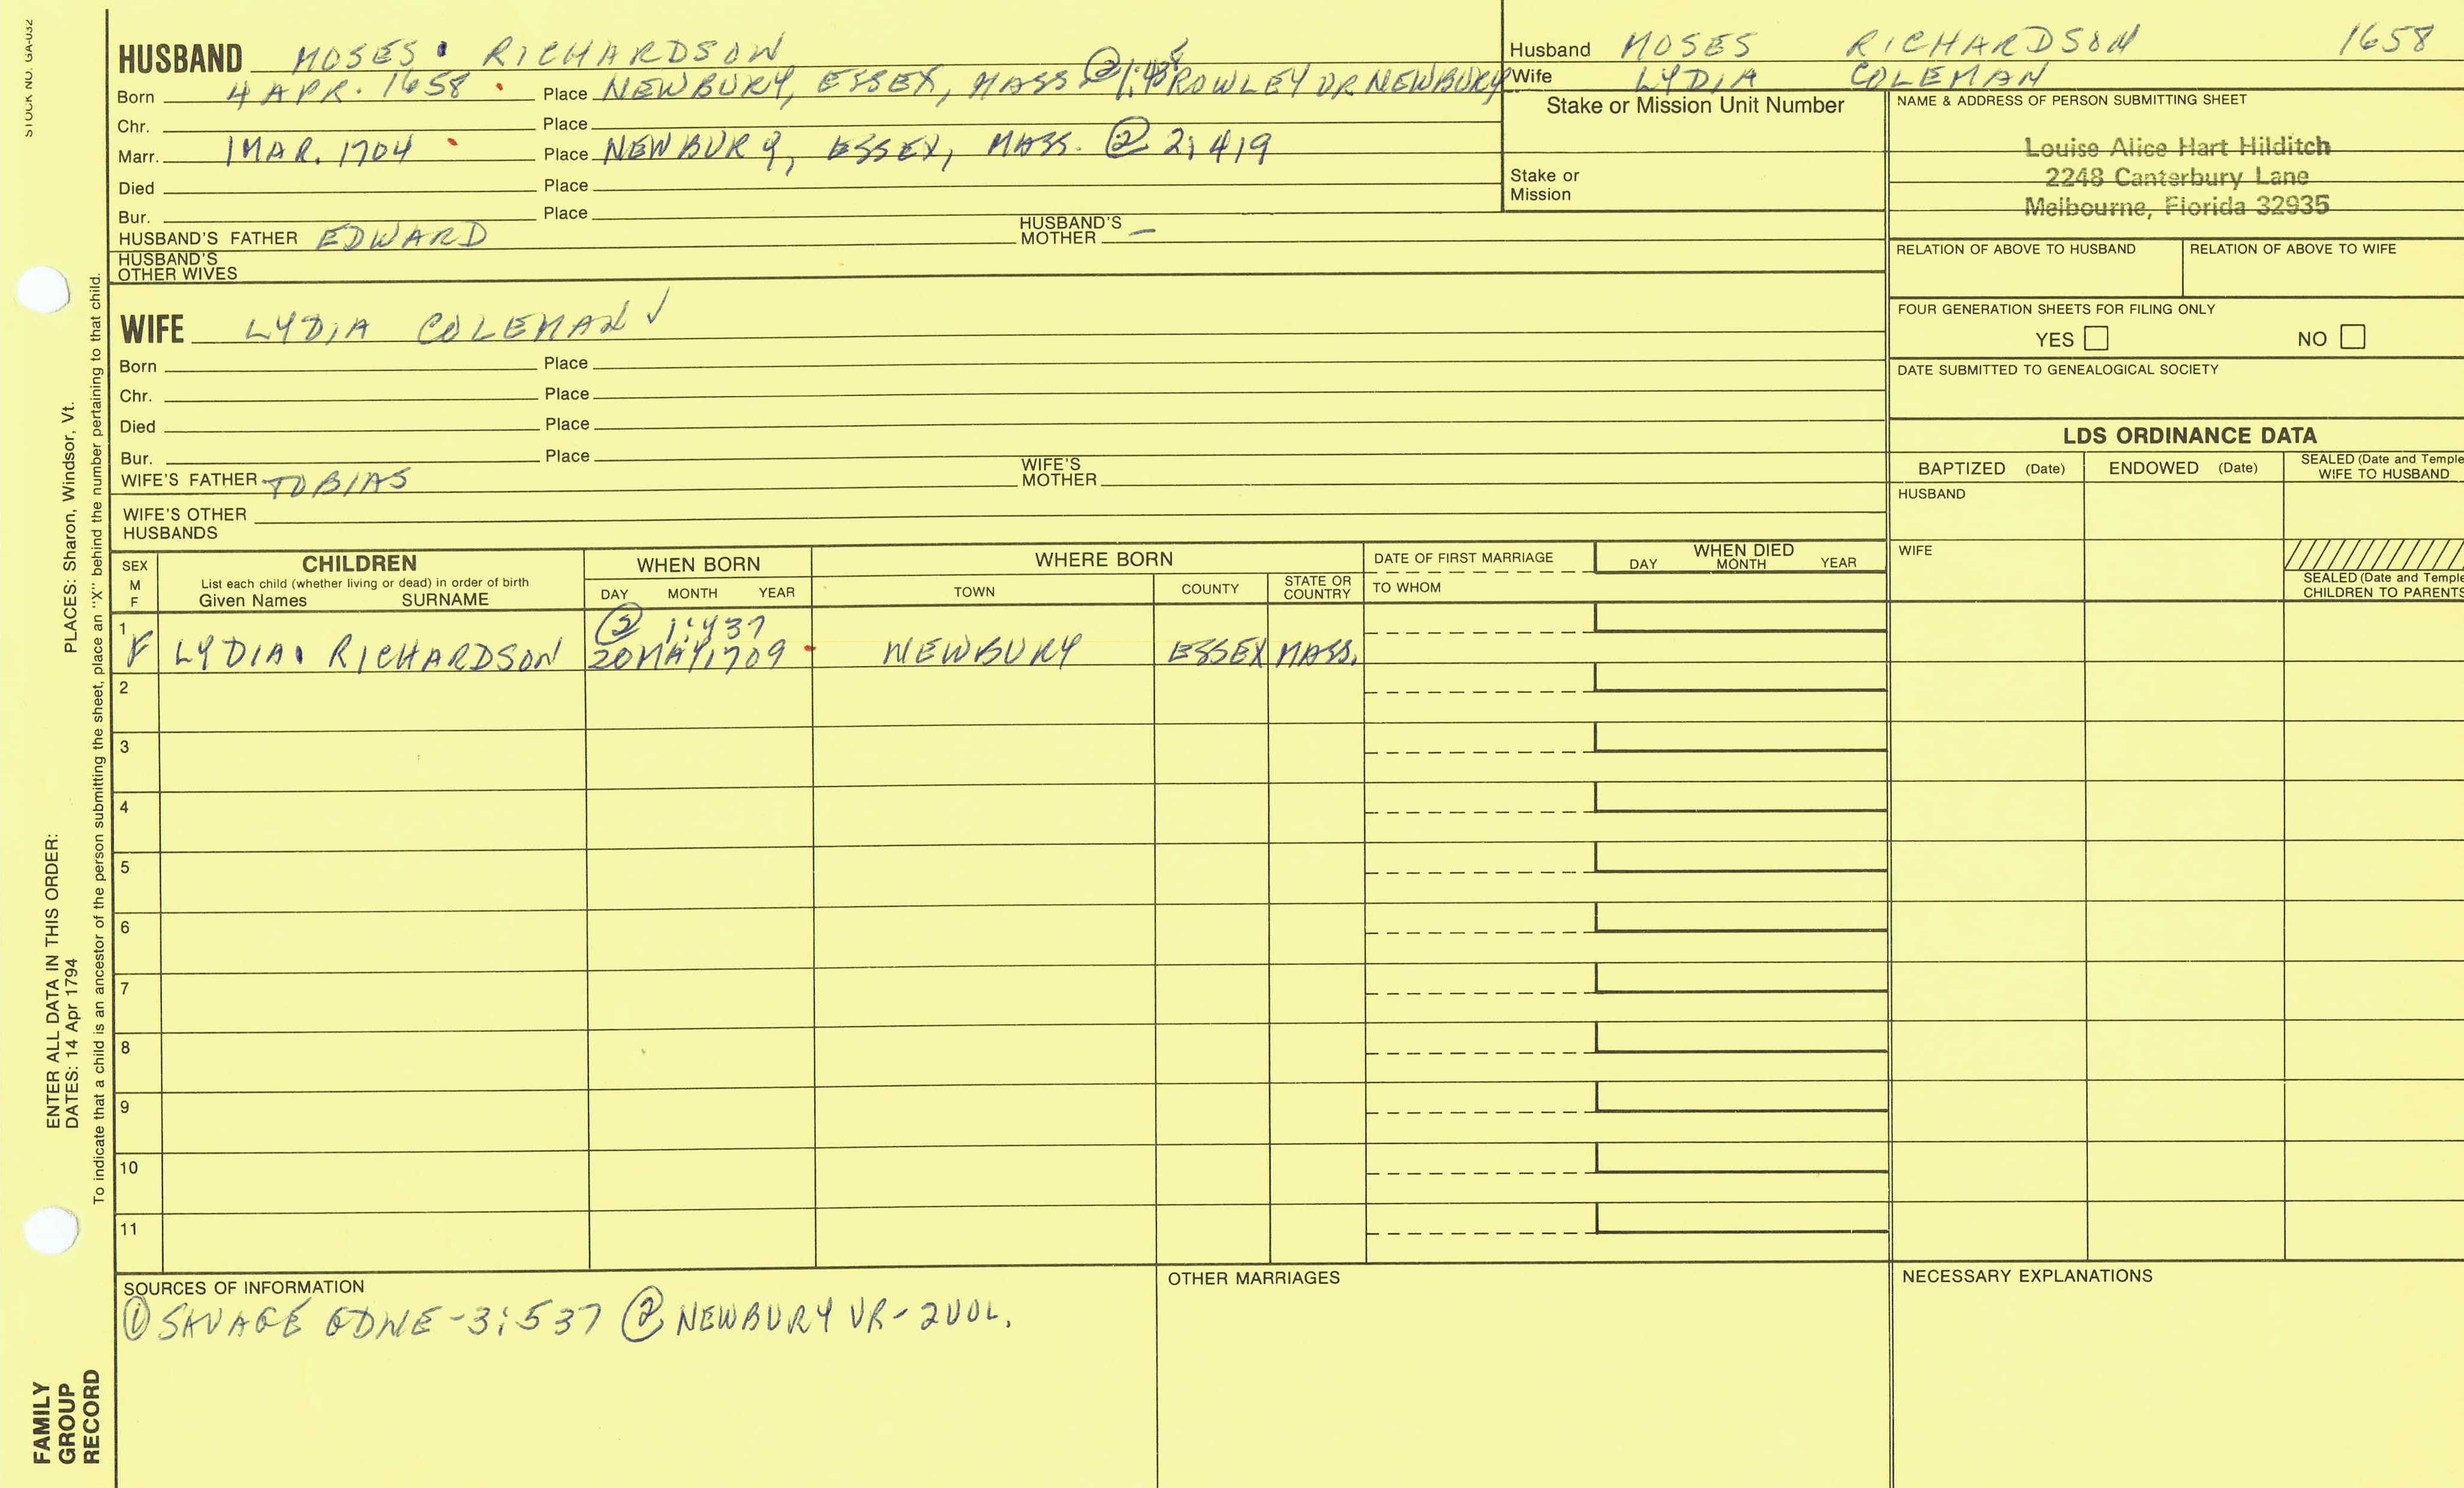 STOCK NO. GA-032
HUSBAND MOSES RICHARDSON
Born 4 APR. 1658 Place NEWBURY, ESSEX, MASS ROWLEY OR NEWBURY
Chr. Place
Marr. 1 MAR. 1704 Place NEWBURY, ESSEX, MASS. ② 2:419
Died Place
Bur. Place
HUSBAND'S FATHER EDWARD HUSBAND'S MOTHER —
HUSBAND'S OTHER WIVES
WIFE LYDIA COLEMAN ✓
Born Place
Chr. Place
Died Place
Bur. Place
WIFE'S FATHER TOBIAS WIFE'S MOTHER
WIFE'S OTHER HUSBANDS
Husband MOSES RICHARDSON 1658
Wife LYDIA COLEMAN
Stake or Mission Unit Number
Stake or Mission
NAME & ADDRESS OF PERSON SUBMITTING SHEET
Louise Alice Hart Hilditch
2248 Canterbury Lane
Melbourne, Florida 32935
RELATION OF ABOVE TO HUSBAND RELATION OF ABOVE TO WIFE
FOUR GENERATION SHEETS FOR FILING ONLY
YES NO
DATE SUBMITTED TO GENEALOGICAL SOCIETY
LDS ORDINANCE DATA
BAPTIZED (Date) ENDOWED (Date) SEALED (Date and Temple WIFE TO HUSBAND
HUSBAND
WIFE
SEALED (Date and Temple
CHILDREN TO PARENTS
SEX M F
CHILDREN
List each child (whether living or dead) in order of birth
Given Names SURNAME
WHEN BORN
DAY MONTH YEAR
WHERE BORN
TOWN COUNTY STATE OR COUNTRY
DATE OF FIRST MARRIAGE
TO WHOM
WHEN DIED
DAY MONTH YEAR
② 1:437
1 F LYDIA RICHARDSON 20 MAY 1709 NEWBURY ESSEX MASS.
2
3
4
5
6
7
8
9
10
11
SOURCES OF INFORMATION
① SAVAGE GDNE-3:537 ② NEWBURY VR-2VOL.
OTHER MARRIAGES
NECESSARY EXPLANATIONS
PLACES: Sharon, Windsor, Vt.
ENTER ALL DATA IN THIS ORDER:
DATES: 14 Apr 1794
To indicate that a child is an ancestor of the person submitting the sheet, place an "X" behind the number pertaining to that child.
FAMILY
GROUP
RECORD